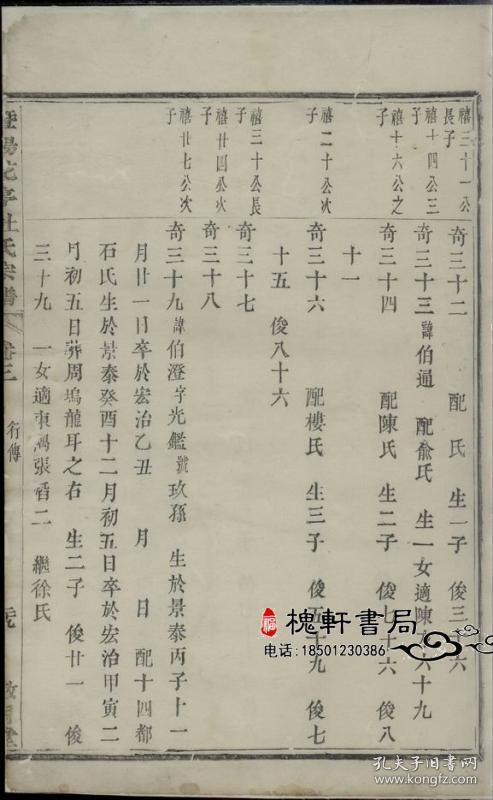 禧三十一公長子
奇三十二　配　氏　生一子　俊三十六
禧十四公三子
奇三十三諱伯通　配俞氏　生一女適陳九六十九
禧十六公之子
奇三十四　配陳氏　生二子　俊七十六　俊八
十一
禧二十公次子
奇三十六　配樓氏　生三子　俊五十九　俊七
十五　俊八十六
禧三十公長子
奇三十七
禧廿四公次子
奇三十八
禧廿七公次子
奇三十九諱伯澄字光鑑號玖孫　生於景泰丙子十一
月廿一日卒於宏治乙丑　月　日　配十四都
石氏生於景泰癸酉十二月初五日卒於宏治甲寅二
月初五日葬周塢龍耳之右　生二子　俊廿一　俊
三十九　一女適東馮張香二　繼徐氏
暨陽花亭杜氏宗譜
卷三
行傳
槐軒書局
电话:18501230386
孔夫子旧书网
kongfz.com